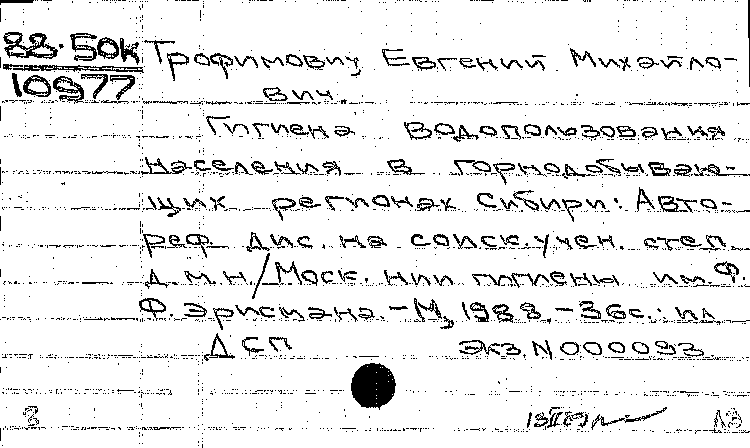 88-50к
10977
Трофимович Евгений Михайло-
вич.
Гигиена водопользования
населения в горнодобываю-
щих регионах Сибири: Авто-
реф дис. на соиск. учен. степ
д.м.н./Моск. нии гигиены им. Ф.
Ф. Эрисмана. - М, 1988. - 36с.: ил
ДСП экз. N 000093.